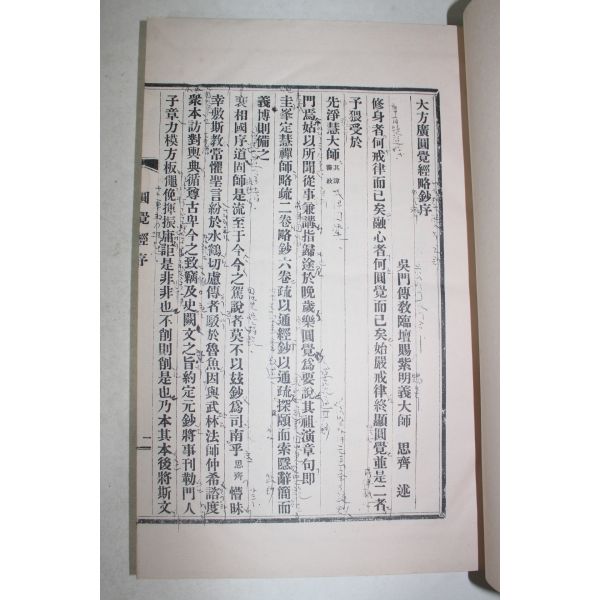 大方廣圓覺經略鈔序
吳門傳教臨壇賜紫明義大師 思齊 述
修身者何戒律而已矣融心者何圓覺而已矣始嚴戒律終顯圓覺並是二者
予猥受於
先淨慧大師其諱審政
門焉姑以所聞從事兼講指歸途於晚歲樂圓覺爲要說其祖演章句即
圭峯定慧禪師略疏二卷略鈔六卷疏以通經鈔以通疏探頤而索隱辭簡而
義博則備之
裵相國序道固師是流至于今今之駕說者莫不以茲鈔爲司南乎思齊憯昧
幸敷斯教常懼聖言紛於水鶴切慮傳者駮於魯魚因與武林法師仲希諮度
衆本訪對輿典循尊古卑今之致竊及史闕文之旨約定元鈔將事刊勒門人
子章力模方板僶俛揮振庸詎是非非也不削則削是也乃本其本後將斯文
圓覺經序
二